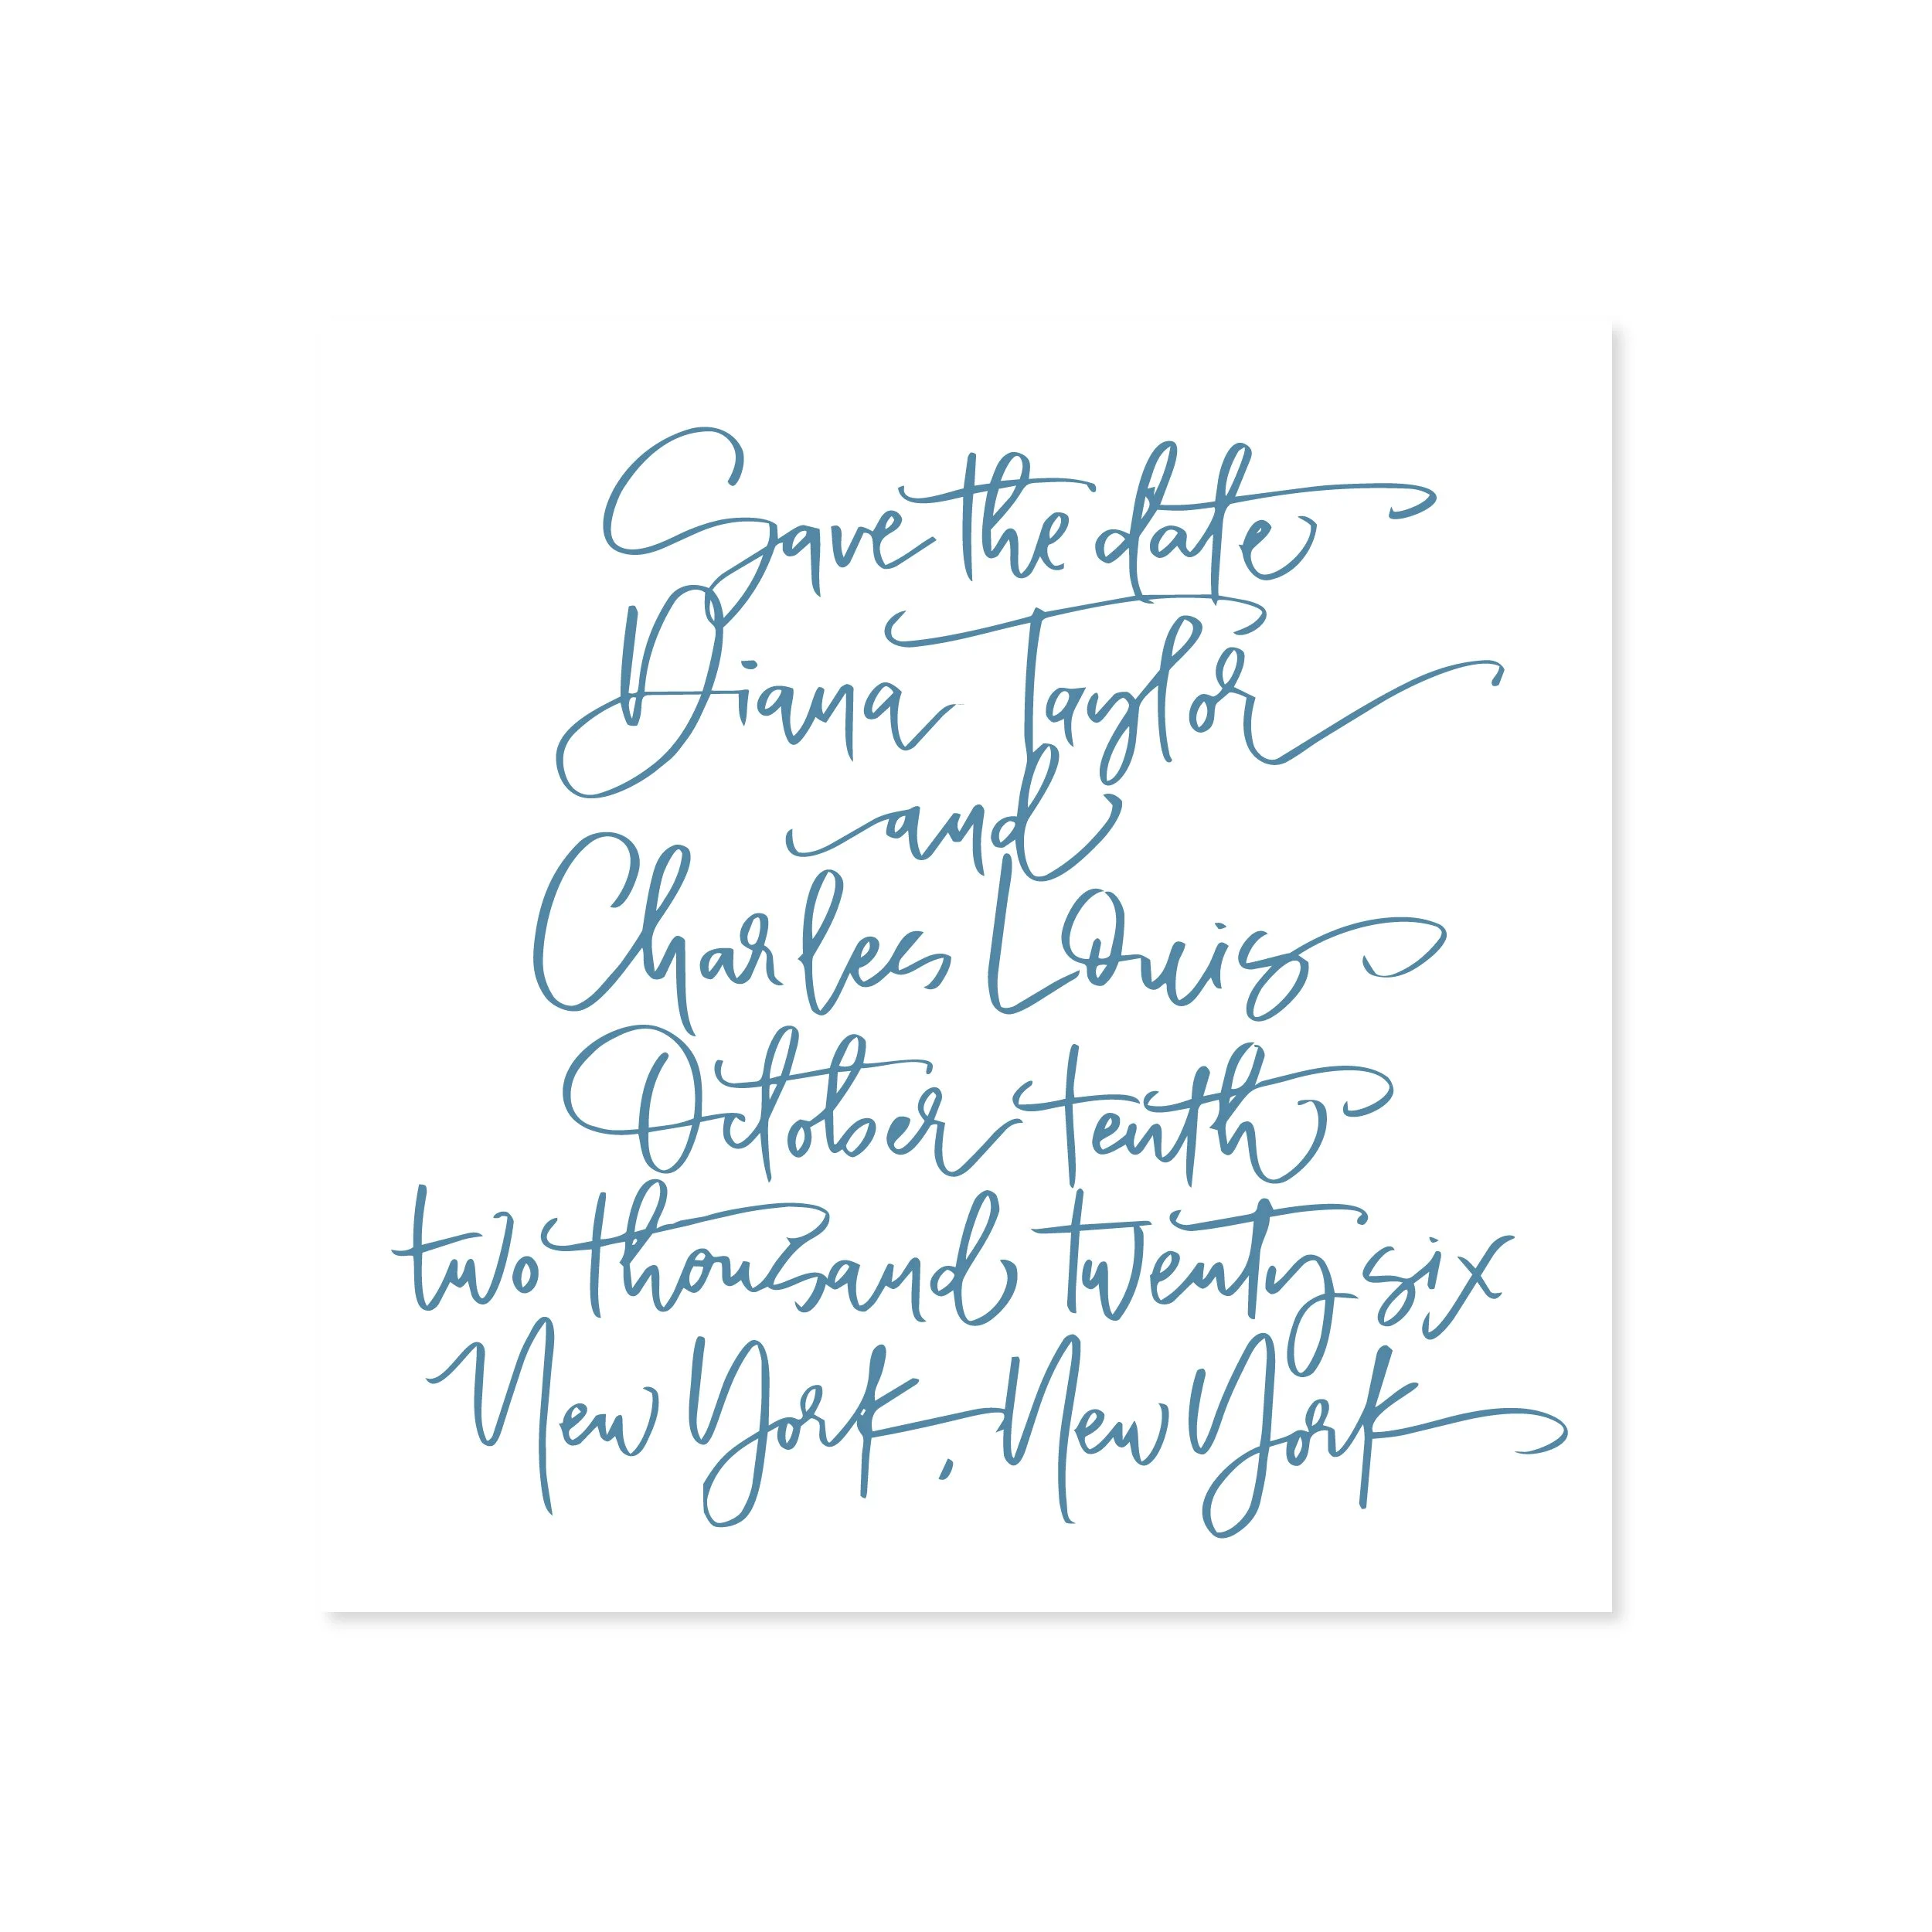 Save the date
Diana Taylor
and
Charles Louis
October tenth
two thousand twenty six
New York, New York